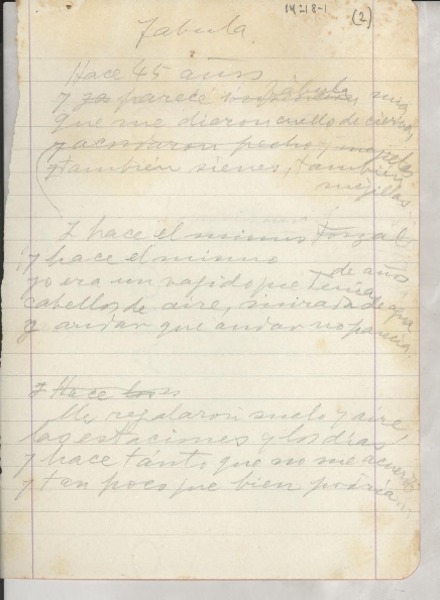 (2)
Fabula
Hace 45 años
y ya parece fabula
que me dieron cuello de cierva,
y acostaron pecho y
y también sienes, también
mejillas
Y hace el mismo
y hace el mismo de años
yo era un que tenía
cabellos de aire, mirada de agua
y andar que andar no parecía.
Y Hace los
Me regalaron suelo y aire
las estaciones y los días
y hace tánto que no me acuerdo
y tan poco que bien podría...